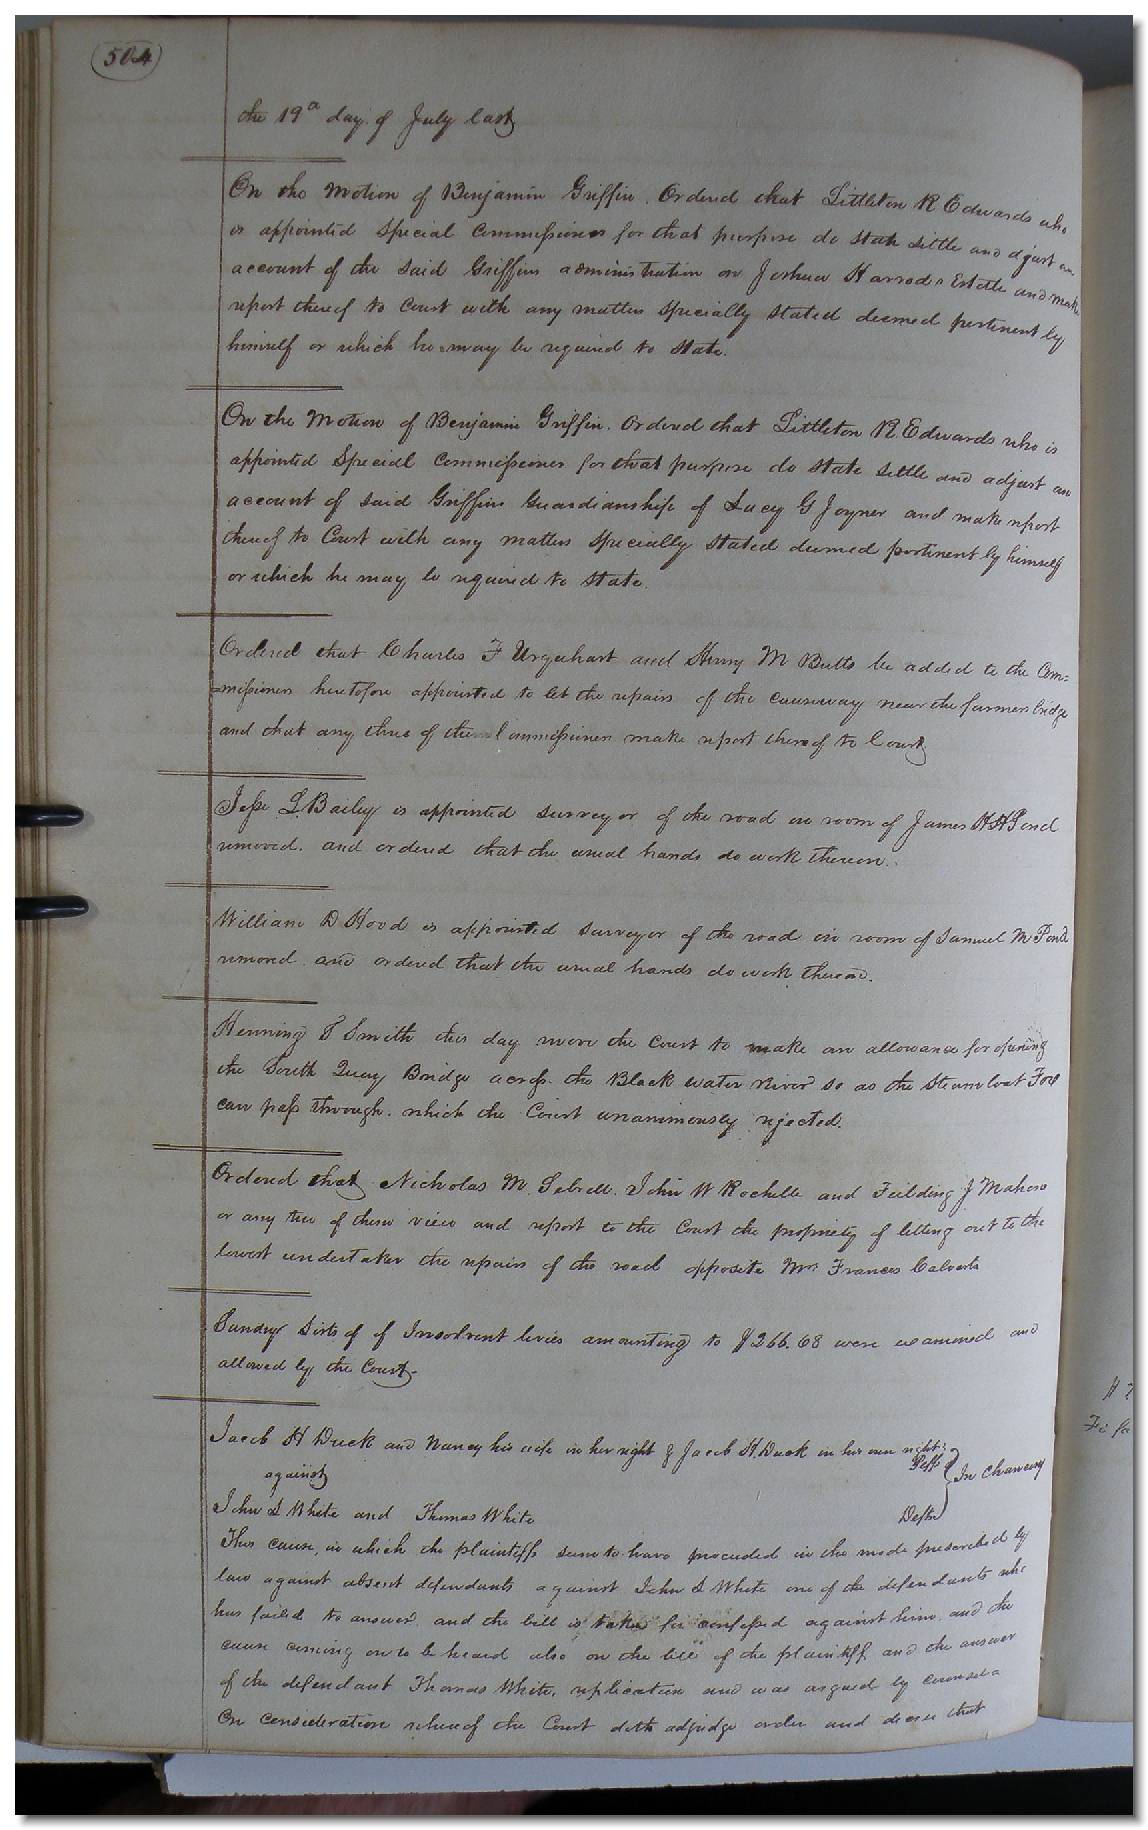 504
the 19th day of July last
On the Motion of Benjamin Griffin. Ordered that Littleton R Edwards who
is appointed Special Commissioner for that purpose do state settle and adjust an
account of the said Griffins administration on Joshua Harrods Estate and make
report thereof to Court with any matters specially stated deemed pertinent by
himself or which he may be required to state.
On the Motion of Benjamin Griffin. Ordered that Littleton R. Edwards who is
appointed Special Commissioner for that purpose do state settle and adjust an
account of said Griffins Guardianship of Lucy G Joyner and make report
thereof to Court with any matters specially stated deemed pertinent by himself
or which he may be required to state.
Ordered that Charles F Urquhart and Henry M Butts be added to the Com=
=missioners heretofore appointed to let the repairs of the causeway near the farmers bridge
and that any three of the Commissioners make report thereof to Court
Jesse L. Bailey is appointed surveyor of the road in room of James H H Pond
removed. and ordered that the usual hands do work thereon.
William D Hood is appointed surveyor of the road in room of Samuel M Pond
removed and ordered that the usual hands do work thereon.
Henning T Smith this day move the Court to make an allowance for opening
the South Quay Bridge across the Black water River so as the Steam boat Fox
can pass through. which the Court unanimously rejected.
Ordered that Nicholas M Sebrell. John W Rochelle and Fielding J Mahone
or any two of them view and report to the Court the propriety of letting out to the
lowest undertaker the repairs of the road opposite Mrs Frances Calverts
Sundry lists of of Insolvent levies amounting to $266.68 were examined and
allowed by the Court.
Jacob H Duck and Nancy his wife in her right & Jacob H. Duck in his own right.
Plffs
against
In Chancery
John S White and Thomas White
Defts
This cause, in which the plaintiffs seem to have proceeded in the mode prescribed by
law against absent defendants against John S White one of the defendants who
has failed to answer and the bill is taken for confessed against him. and the
cause coming on to be heard also on the bill of the plaintiff and the answer
of the defendant Thomas White, replication and was argued by counsel
On consideration whereof the Court doth adjudge order and decree that